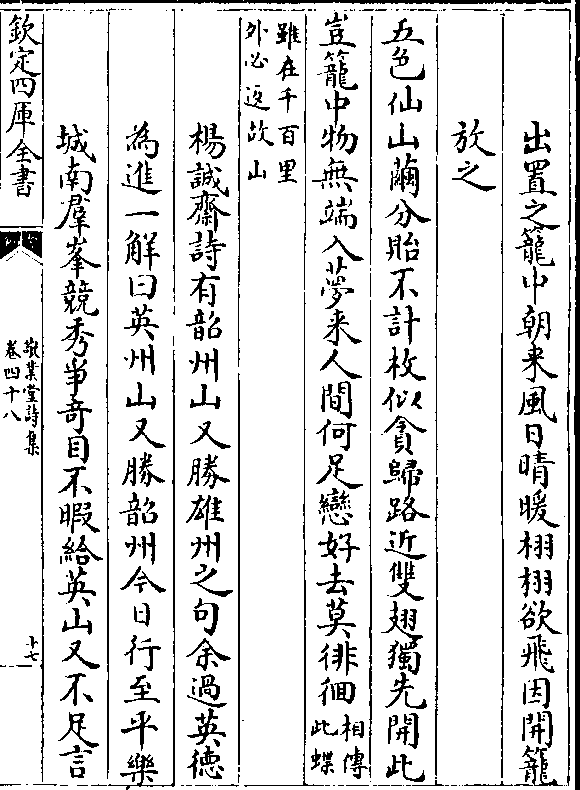 出置之籠中朝来風日晴暖栩栩欲飛因開籠
放之
五色仙山繭分貽不計枚似貪歸路近雙翅獨先開此
豈籠中物無端入夢来人間何足戀好去莫徘徊相傳
此蝶
雖在千百里
外必返故山
楊誠齋詩有韶州山又勝雄州之句余過英德
為進一解曰英州山又勝韶州今日行至平樂
城南羣峯競秀爭奇目不暇給英山又不足言
欽定四庫全書
敬業堂詩集
卷四十八
十七